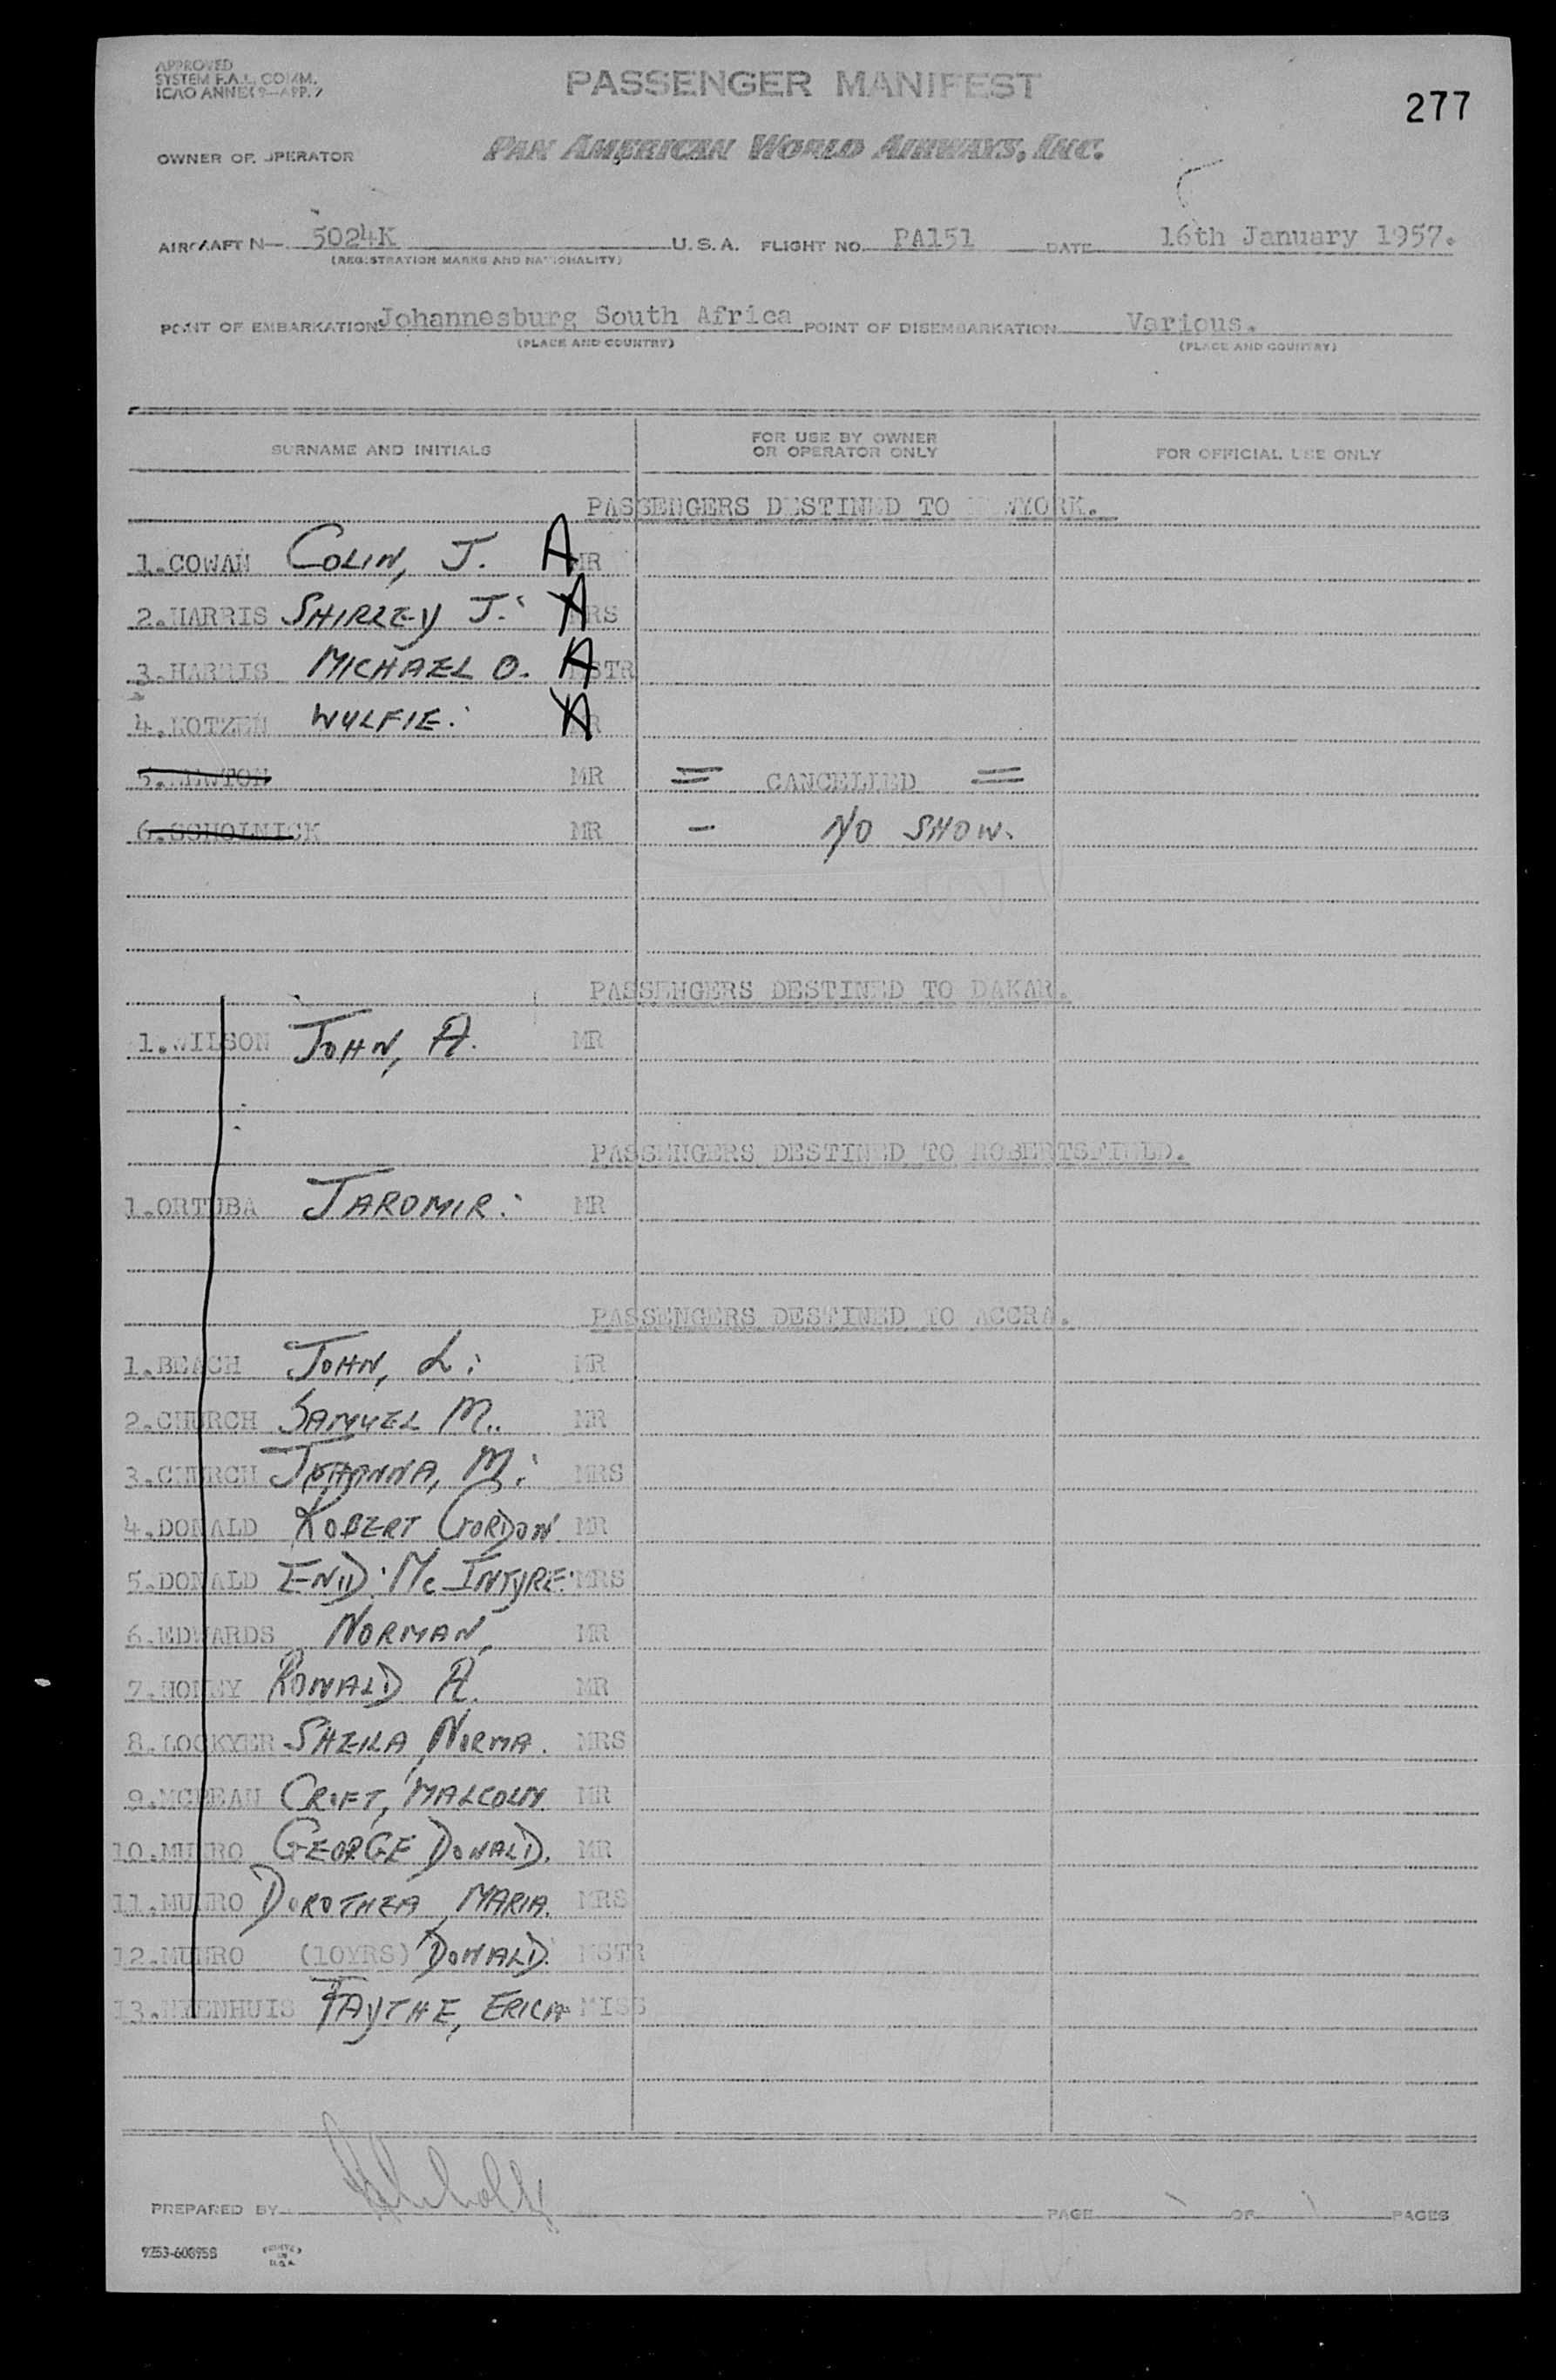 APPROVED
SYSTEM F.A.L. COMM.
ICAO ANNEX 9—APP. 7
PASSENGER MANIFEST
277
OWNER OR OPERATOR PAN AMERICAN WORLD AIRWAYS, INC.
AIRCRAFT N— 5024K U. S. A. FLIGHT NO. PA151 DATE 16th January 1957.
(REGISTRATION MARKS AND NATIONALITY)
POINT OF EMBARKATION Johannesburg South Africa POINT OF DISEMBARKATION Various.
(PLACE AND COUNTRY) (PLACE AND COUNTRY)
SURNAME AND INITIALS FOR USE BY OWNER OR OPERATOR ONLY FOR OFFICIAL USE ONLY
PASSENGERS DESTINED TO NEWYORK.
1.COWAN COLIN, J. A MR
2.HARRIS SHIRLEY J. A MRS
3.HARRIS MICHAEL O. A MSTR
4.KOTZEN WULFIE. A MR
5.NEWTON MR = CANCELLED =
6.SCHOLNICK MR - NO SHOW.
PASSENGERS DESTINED TO DAKAR.
1.WILSON JOHN, A. MR
PASSENGERS DESTINED TO ROBERTSFIELD.
1.ORTUBA JAROMIR. MR
PASSENGERS DESTINED TO ACCRA.
1.BEACH JOHN, L. MR
2.CHURCH SAMUEL M.. MR
3.CHURCH JOHANNA, M. MRS
4.DONALD ROBERT GORDON MR
5.DONALD ENID. Mc INTYRE. MRS
6.EDWARDS NORMAN, MR
7. RONALD A. MR
8.LOCKYER SHEILA NORMA. MRS
9.MCBEAN CROFT, MALCOLM MR
10.MUNRO GEORGE DONALD. MR
11.MUNRO DOROTHEA MARIA. MRS
12.MUNRO (10YRS) DONALD. MSTR
13. FAYTHE, ERICA MISS
PREPARED BY PAGE 1 OF 1 PAGES
9253-608958 PRINTED IN U.S.A.